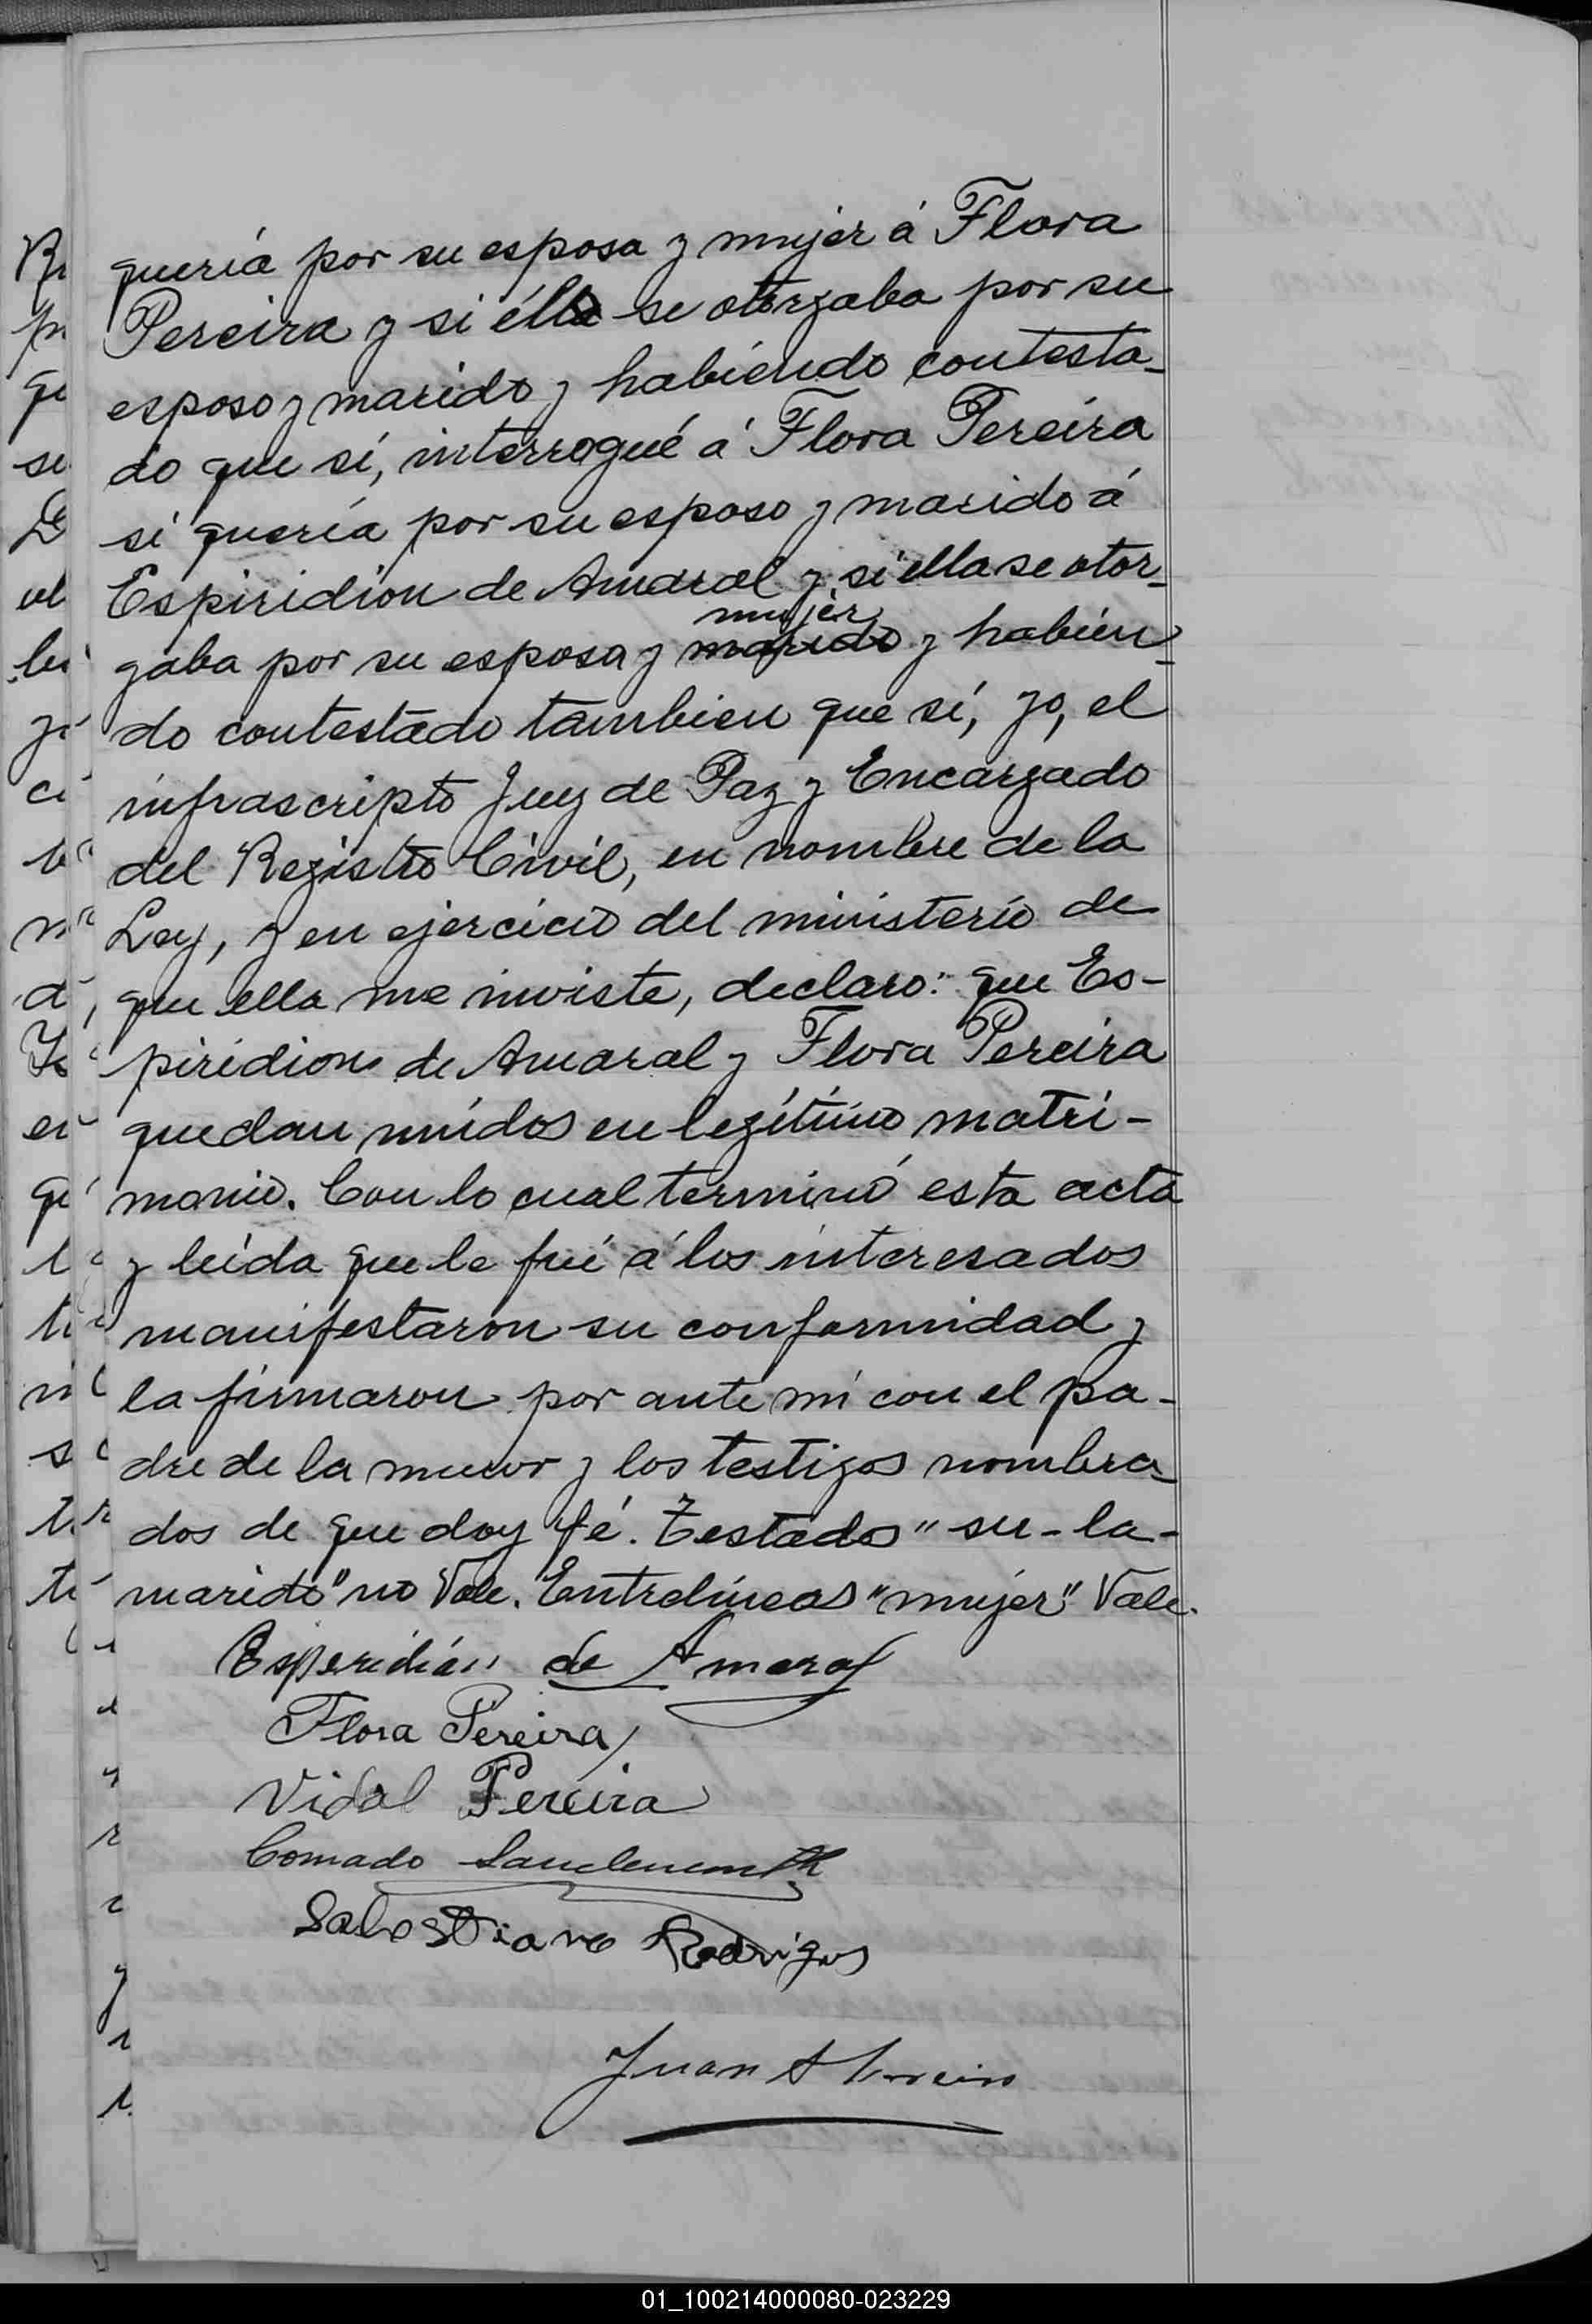 quería por su esposa y mujer á Flora
Pereira y si él se otorgaba por su
esposo y marido y habiendo contesta-
do que sí, interrogué á Flora Pereira
si quería por su esposo y marido á
Espiridion de Amaral y si ella se otor-
mujer
gaba por su esposa y marido y habien-
do contestado tambien que sí, yo, el
infrascripto Juez de Paz y Encargado
del Registro Civil, en nombre de la
Ley, y en ejercicio del ministerio de
que ella me inviste, declaro: que Es-
piridion de Amaral y Flora Pereira
quedan unidos en legítimo matri-
monio. Con lo cual terminó esta acta
y leída que le fué á los interesados
manifestaron su conformidad y
la firmaron por ante mi con el pa-
dre de la menor y los testigos nombra-
dos de que doy fé. Testados "su-la-
marido" no Vale. Entrelíneas "mujer" Vale.
Esperidión de Amaral
Flora Pereira
Vidal Pereira
Conrado
Rodrigues
Juan A
01_100214000080-023229